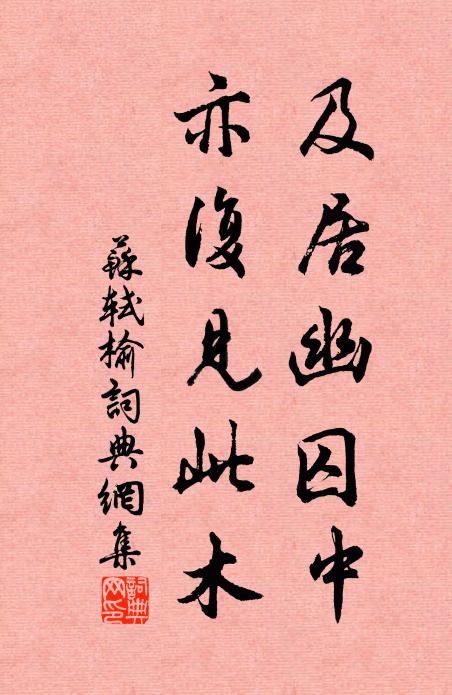 及居幽囚中
亦復見此木
蘇軾榆詞典網集
詞典網印